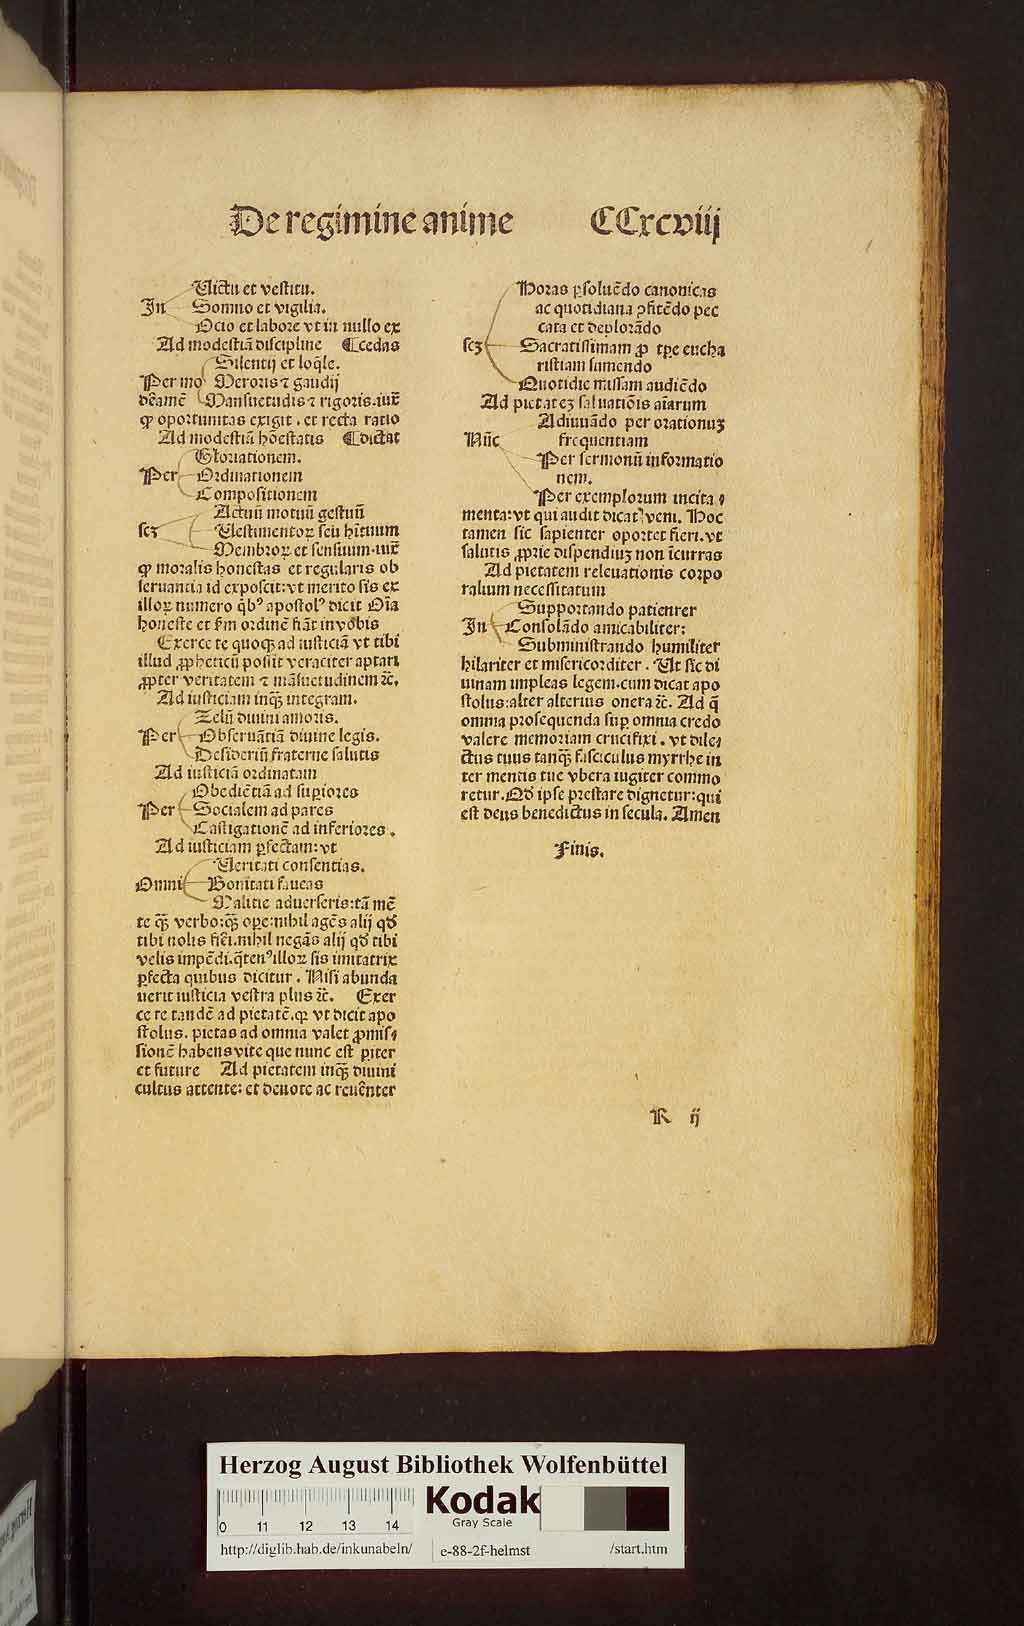 De regimine anime CCxcviij
Uictu et vestitu.
In Somno et vigilia.
Ocio et labore vt in nullo ex
Ad modestiā discipline ⸿cedas
Silentij et loq̄le.
Per mo Meroris ⁊ gaudij
derāmē Mansuetudis ⁊ rigoris.iux̄
ꝙ oportunitas exigit . et recta ratio
Ad modestiā hōestatis ⸿dictat
Gloriationem.
Per Ordinationem
Compositionem
Actuū motuū gestuū
scꝫ Uestimentoꝝ seu hītuum
Membroꝝ et sensuum.iux̄
ꝙ moralis honestas et regularis ob
seruantia id exposcit:vt merito sis ex
illoꝝ numero q̄bꝰ apostolꝰ dicit Oīa
honeste et ẜm ordinē fiāt in vobis
Exerce te quoqꝫ ad iusticiā vt tibi
illud ꝓpheticū possit veraciter aptari
ꝓpter veritatem ⁊ māsuetudinem ⁊c̄.
Ad iusticiam inqꝫ̄ integram.
Zelū diuini amoris.
Per Obseruātiā diuine legis.
Desideriū fraterne salutis
Ad iusticiā ordinatam
Obediētiā ad suꝑiores
Per Socialem ad pares
Castigationē ad inferiores .
Ad iusticiam ꝑfectam:vt
Ueritati consentias.
Omni Bonitati faueas
Malitie aduerseris:tā mē
te qꝫ̄ verbo:qꝫ̄ oꝑe:nihil agēs alij qđ
tibi nolis fieri.nihil negās alij qđ tibi
velis impēdi.q̄tenꝰ illoꝝ sis imitatrix
ꝑfecta quibus dicitur . Nisi abunda
uerit iusticia vestra plus ⁊c̄. Exer
ce te tandē ad pietatē.ꝙ vt dicit apo
stolus. pietas ad omnia valet ꝓmis⸗
sionē habens vite que nunc est ꝑiter
et future Ad pietatem inqꝫ̄ diuini
cultus attente: et deuote ac reuēnter
Horas ꝑsoluēdo canonicas
ac quotidiana ꝓfitēdo pec
cata et deplorādo
scꝫ Sacratissimam ꝓ tꝑe eucha
ristiam sumendo
Quotidie missam audiēdo
Ad pietateꝫ saluatiōis aīarum
Adiuuādo per orationuꝫ
Nūc frequentiam
Per sermonū informatio
nem.
Per exemplorum incita⸗
menta:vt qui audit dicat veni. Hoc
tamen sic sapienter oportet fieri.vt
salutis ꝓprie dispendiuꝫ non īcurras
Ad pietatem releuationis corpo
ralium necessitatum
Supportando patienter
In Consolādo amicabiliter:
Subministrando humiliter
hilariter et misericorditer . Ut sic di
uinam impleas legem.cum dicat apo
stolus:alter alterius onera ⁊c̄. Ad q̄
omnia prosequenda suꝑ omnia credo
valere memoriam crucifixi . vt dile⸗
ctus tuus tanqꝫ̄ fasciculus myrrhe in
ter mentis tue vbera iugiter commo
retur.Qđ ipse prestare dignetur:qui
est deus benedictus in secula. Amen
Finis.
R ij
Herzog August Bibliothek Wolfenbüttel
Kodak
Gray Scale
0 11 12 13 14
http://diglib.hab.de/inkunabeln/ e-88-2f-helmst /start.htm